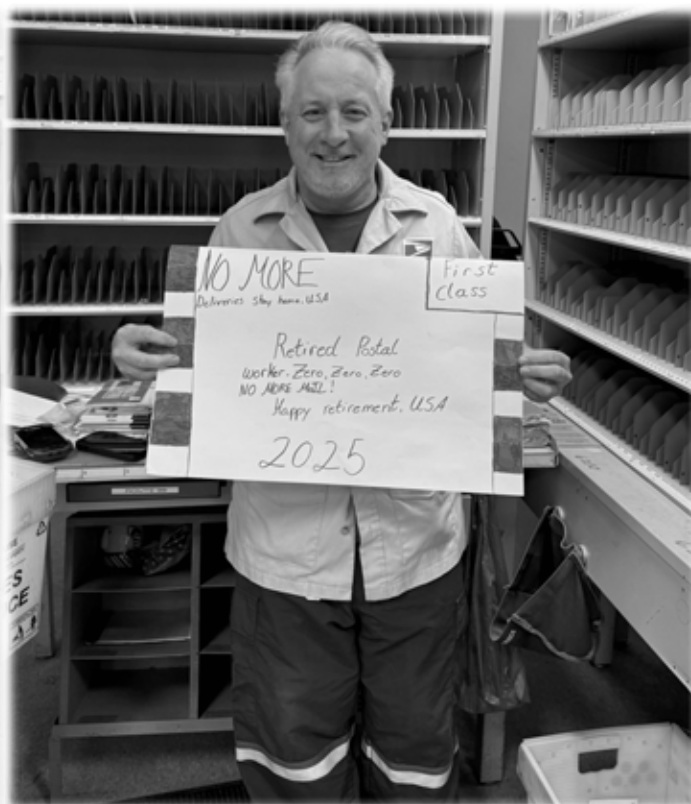 NO MORE
Deliveries stay home, USA
First
Class
Retired Postal
Worker. Zero, Zero, Zero
NO MORE MAIL!
Happy retirement, USA
2025
S
CE